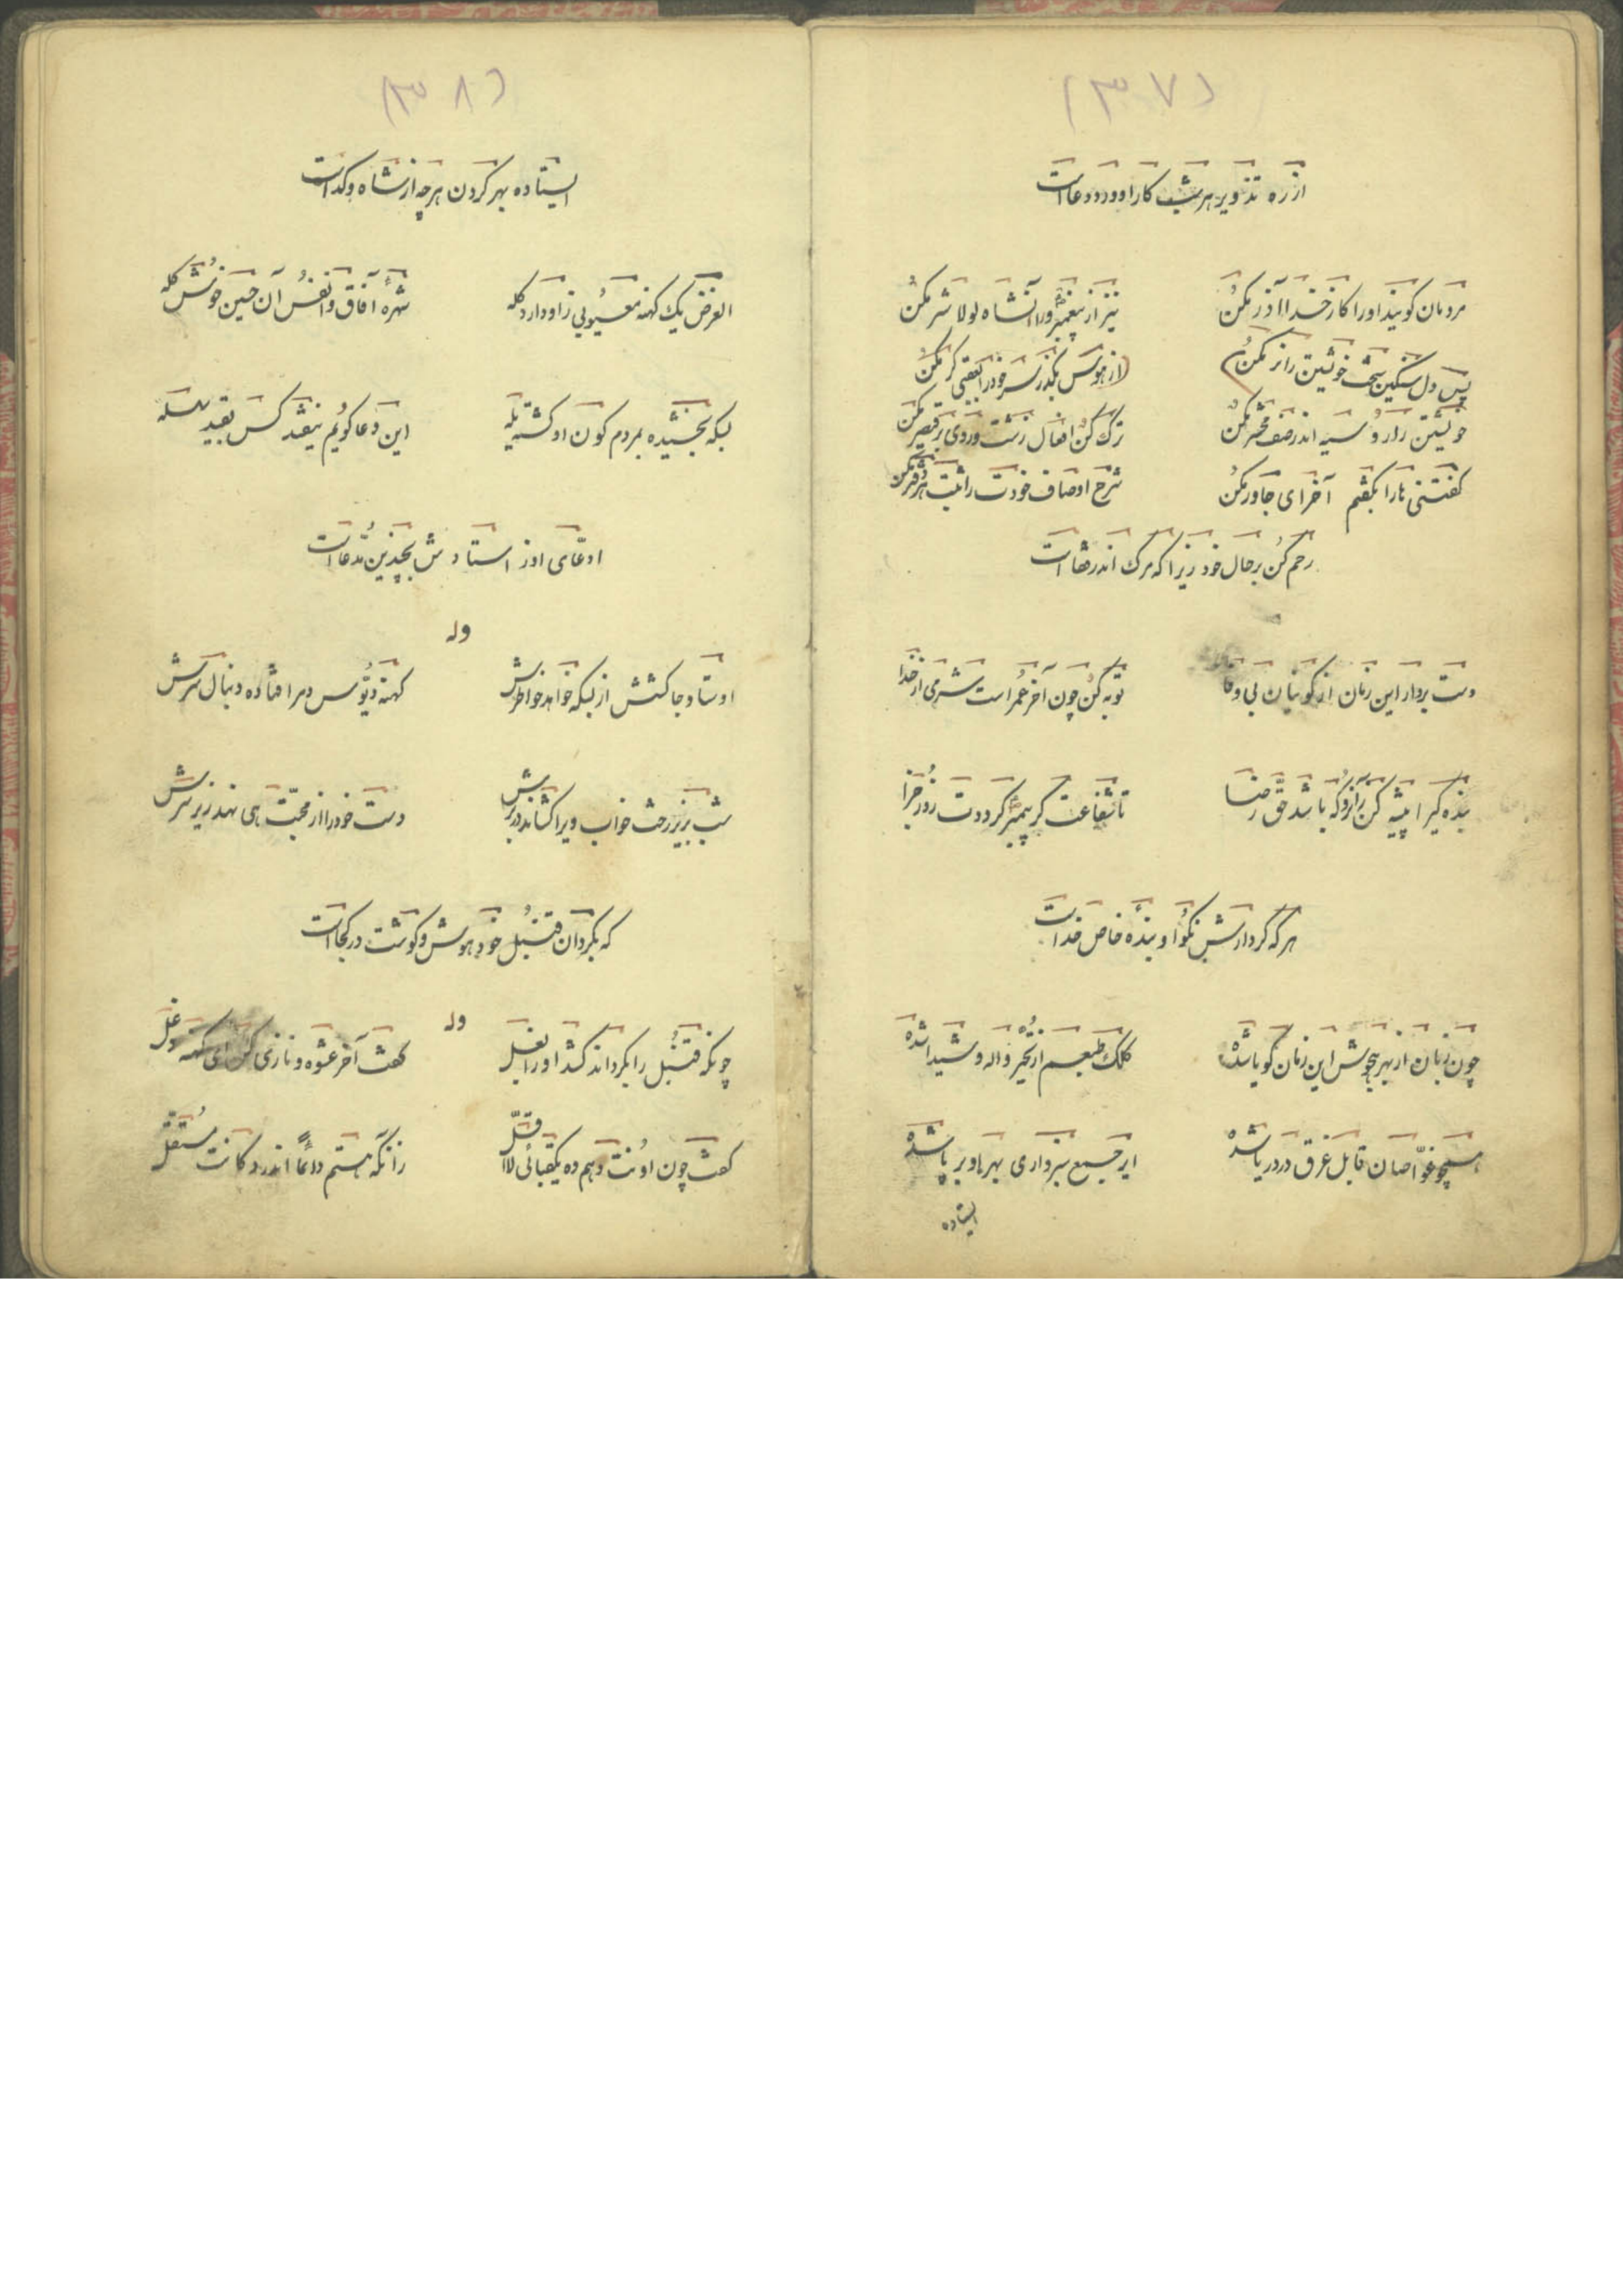 (۳۷)
از ره تذویر هر شب کار او ورد و دعا است
مردمان گویند اورا کار خدا آذر مکن
نیز از پیغمبر و را آنشاه لولا شر مکن
پس دل سنگین سخت خویشتن را نر مکن)
(از هوس بگذر بسر خودرا بعقبی کر مکن
خویشتن را رو سیه اندر صف محشر مکن
ترک کن افعال زشت و روی بر قیصر مکن
گفتنی ها را بگفتم آخر ای جاور مکن
شرح اوصاف خودت را ثبت هر دفتر مکن
رحم کن بر حال خود زیرا که مرگ اندر قفا است
دست بردار این زمان از کونیان بی وفا
توبه کن چون آخر عمر است شرمی از خدا
بنده گیرا پیشه کن زآنرو که باشد حق رضا
تا شفاعت گر پیمبر گرددت روز جزا
هر که کردارش نکو او بندهٔ خاص خدا است
چون زبان از بهر هجوش این زمان گویا شده
کلک طبعم از تحیر واله و شیدا شده
همچو غوّاصان قابل غرق در دریا شده
ایر جمیع سبزواری بهر او بر پا شده
ایستاده
(۳۸)
ایستاده بهر کردن هرچه از شاه و گدا است
الغرض یک کهنه معیوبی ز او دارد گله
شهرهٔ آفاق و انفس آن حسین خوش کله
بسکه بخشیده بمردم کون او گشته یله
این دعا گویم نیفتد کس بقید سلسله
ادعای او ز استادش بچندین مدعا است
وله
اوستاد جاکشش از بسکه خواهد خواطرش
کهنه دیّوس دمر افتاده دنبال سرش
شب بزیر رخت خواب ویرا کشاند در برش
دست خودرا از محبّت هی نهد زیر سرش
که بگردان قنبل خود هوش و گوشت در کجا است
وله
چونکه قنبل را بگرداند کشد او را بغل
گفت آخر عشوه و نازی کن ای کهنه دغل
گفت چون اوفتد دهم ده یکقبائی لااقلّ
زانکه هستم دائماً اندر دکانت مستقلّ